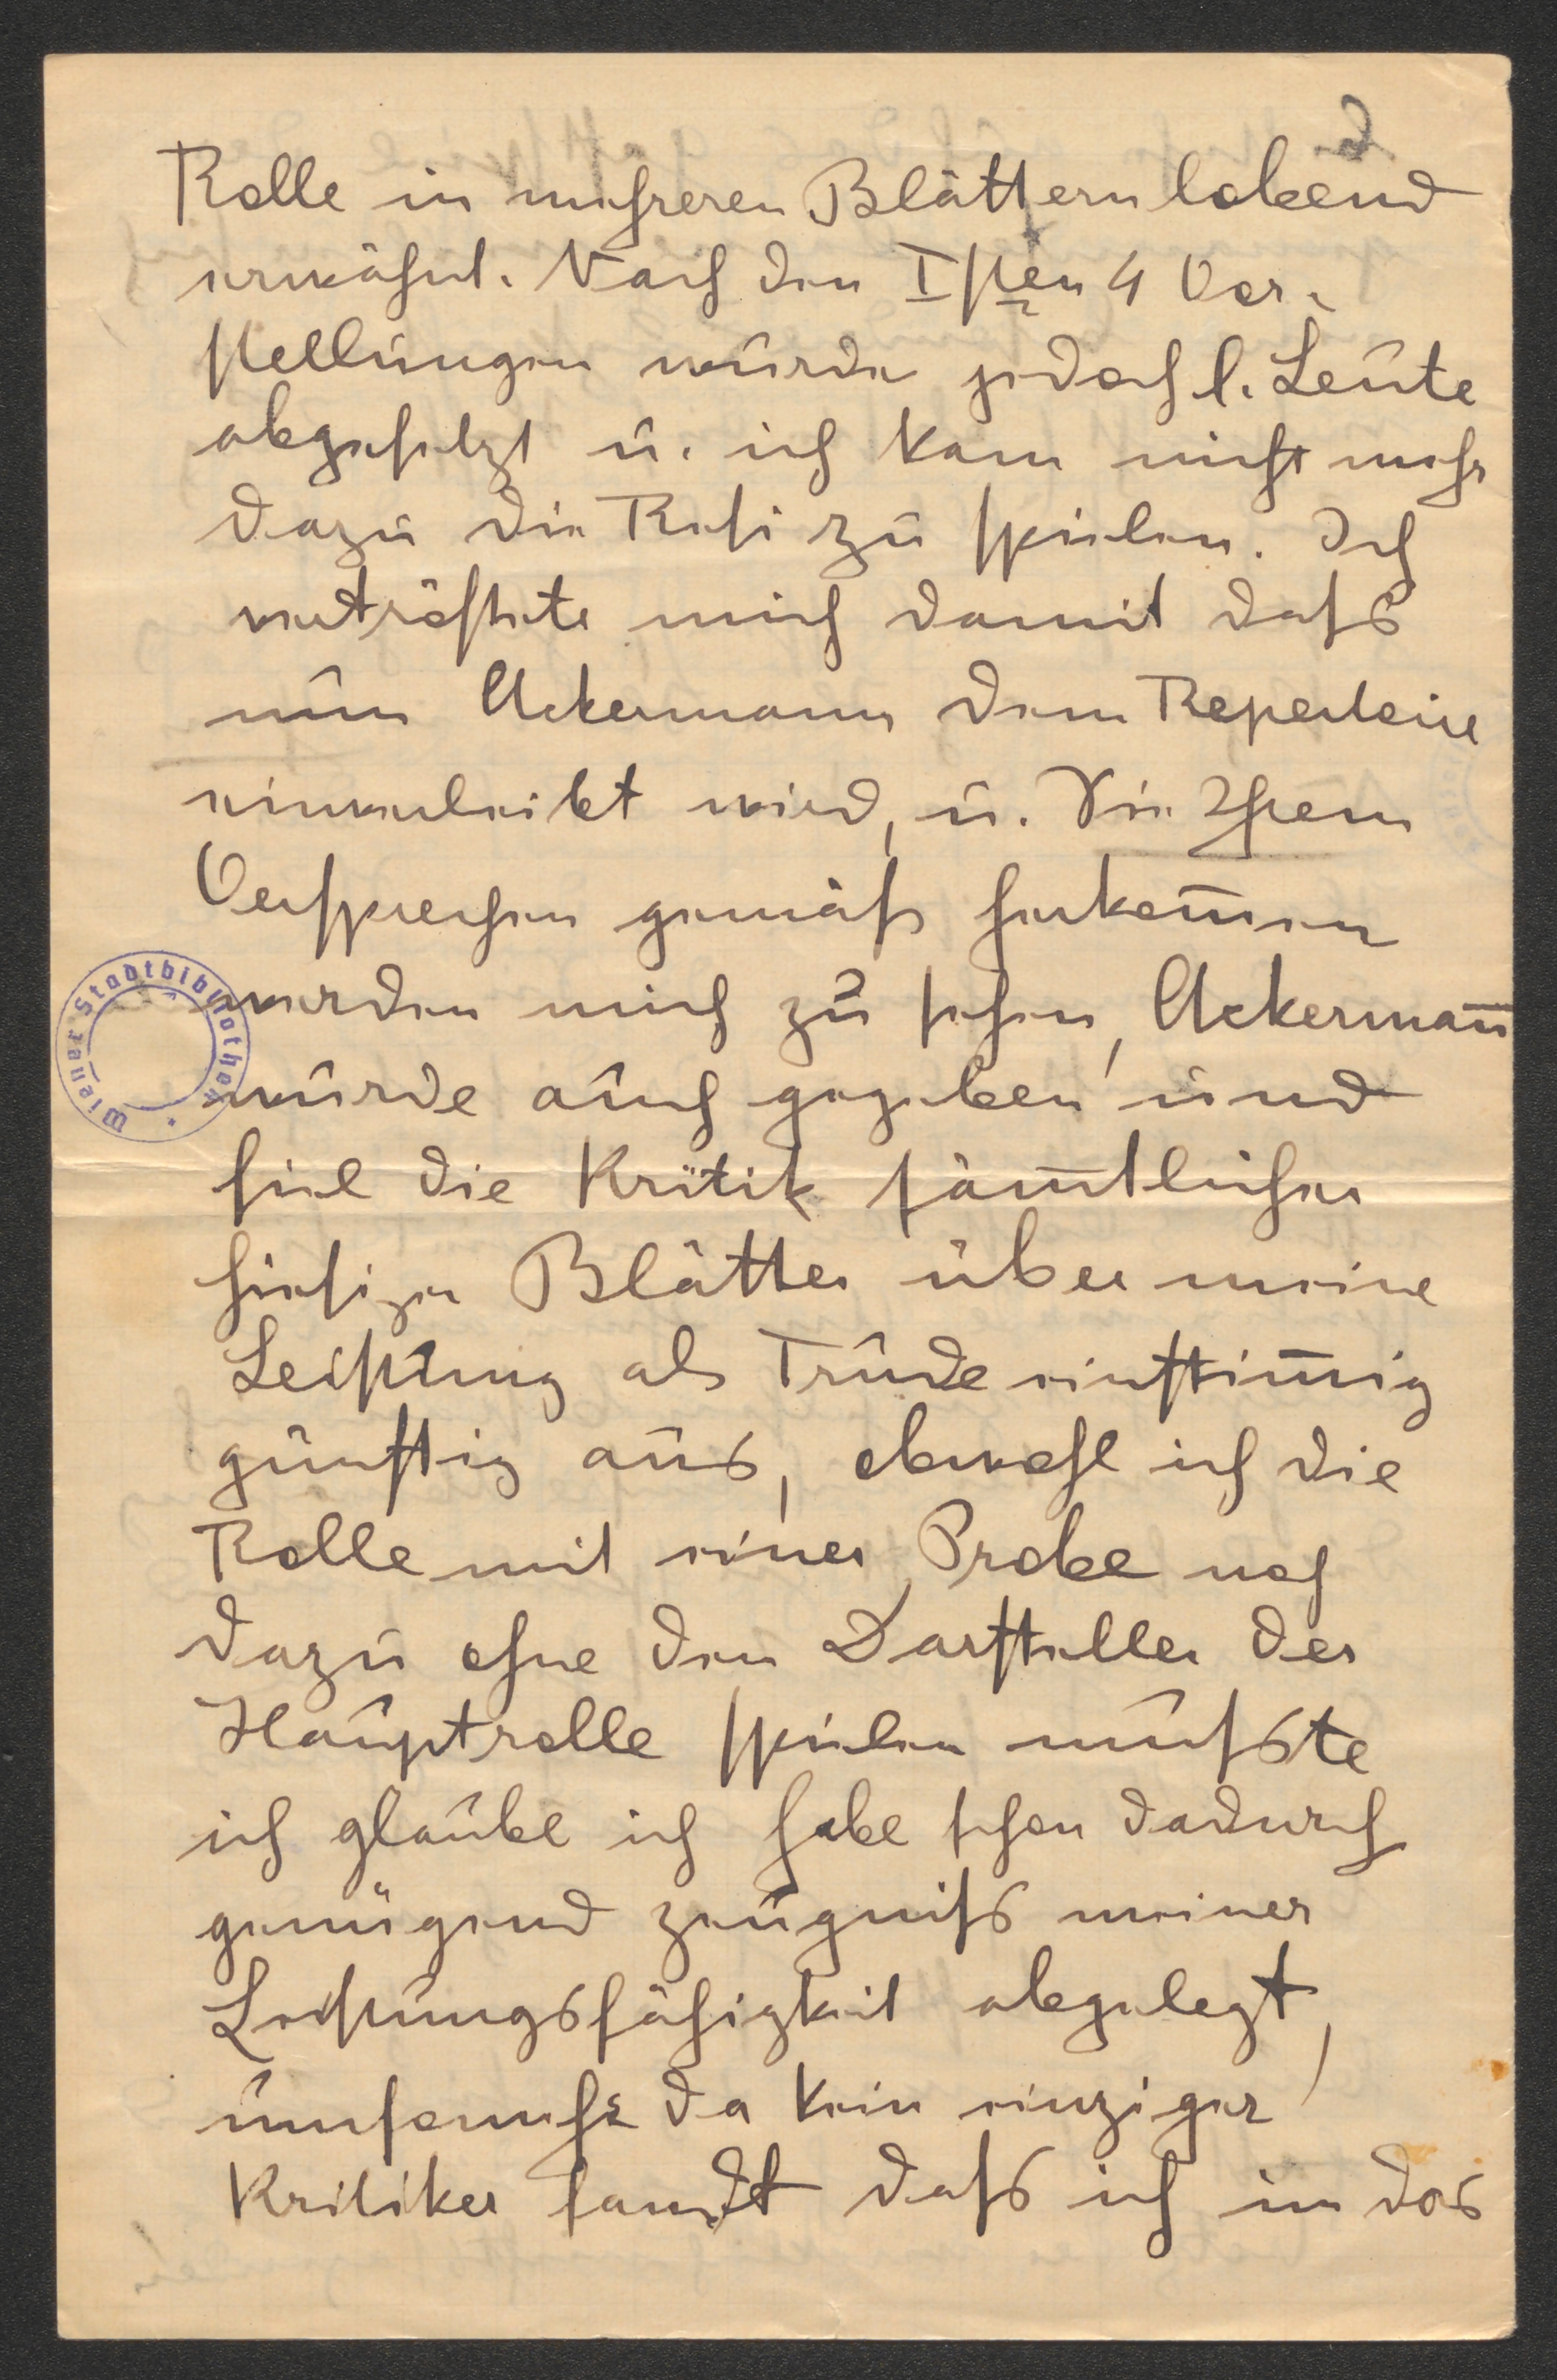 2
Rolle in mehreren Blättern lobend
erwähnt. Nach den Isten 4 Vor-
stellungen wurde jedoch l. Leute
abgesetzt u. ich kam nicht mehr
dazu die Resi zu spielen. Ich
vertröstete mich damit dass
nun Ackermann dem Repertoire
einverleibt wird, u. Sie Ihrem
Versprechen gemäss herkom̄en
werden mich zu sehen, Ackerman̄
wurde auch gegeben und
fiel die Kritik säm̄tlicher
hiesiger Blätter über meine
Leistung als Trude einstim̄ig
günstig aus, obwohl ich die
Rolle mit einer Probe noch
dazu ohne den Darsteller der
Hauptrolle spielen musste
ich glaube ich habe schon dadurch
genügend zeugniss meiner
Leistungsfähigkeit abgelegt,
umsomehr da kein einziger
Kritiker fandt dass ich in das
Wiener Stadtbibliothek